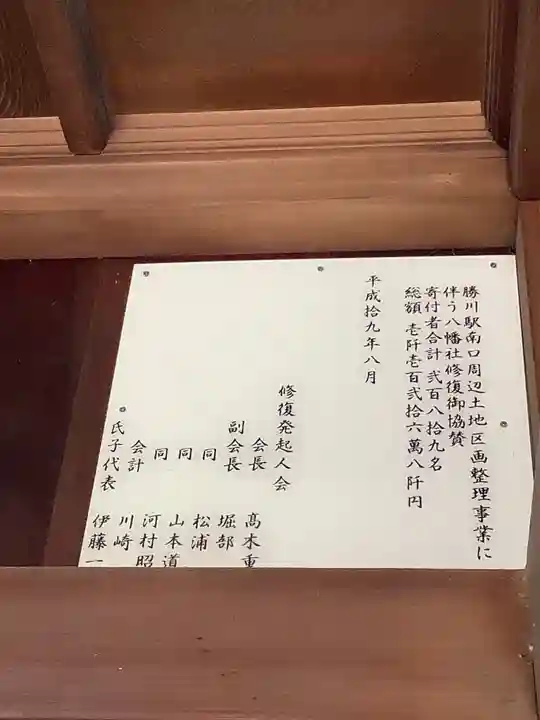 勝川駅南口周辺土地区画整理事業に
伴う八幡社修復御協賛
寄付者合計 弐百八拾九名
総額 壱阡壱百弐拾六萬八阡円
平成拾九年八月
修復発起人会
会長 髙木重
副会長 堀部
同 松浦
同 山本道
同 河村昭
会計 川崎
氏子代表 伊藤一